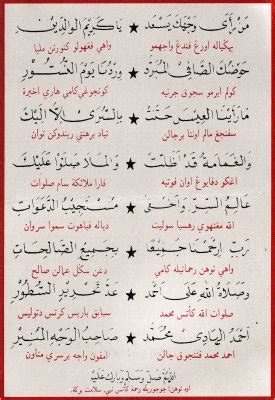 مَنْ رَأَى وَجْهَكَ يَسْعَدْ ★ يَا كَرِيمَ الْوَالِدَيْنِ
بهكياله اورڠ فندڠ واجهمو واهي فڠهولو كتورنن مليا
حَوْضُكَ الصَّافِي الْمُبَرَّدْ ★ وِرْدُنَا يَوْمَ النُّشُورِ
كولم ايرمو سجوق جرنيه كونجوڠي كامي هاري اخيرة
مَا رَأَيْنَا الْعِيسَ حَنَّتْ ★ بِالسُّرَى إِلَّا إِلَيْكَ
سفنجڠ مالم اونتا برجالن تياد برهنتي ريندوكن توان
وَالْغَمَامَةُ قَدْ أَظَلَّتْ ★ وَالْمَلَا صَلُّوْا عَلَيْكَ
اڠكو دفايوڠ اوان فوتيه فارا ملائكة سام صلوات
عَالِمُ السِّرِّ وَأَخْفَى ★ مُسْتَجِيبُ الدَّعَوَاتِ
الله مڠتهوي رهسيا سوليت دياله سموا سروان
رَبِّ ارْحَمْنَا جَمِيعًا ★ بِجَمِيعِ الصَّالِحَاتِ
واهي توهن رحمتيله كامي دڠن سكل عمالن صالح
وَصَلَاةُ اللهِ عَلَى أَحْمَدْ ★ عَدَّ تَحْرِيرِ السُّطُورِ
صلوات الله كأتس محمد سباڽق باريس كرتس دتوليس
أَحْمَدُ الْهَادِي مُحَمَّدْ ★ صَاحِبُ الْوَجْهِ الْمُنِيرِ
احمد محمد فنتجوق جالن امفون واجه برسري
اللهم صل وسلم وبارك عليه
اوه توهن! چوچوريله رحمة كأتس نبي، سلامت بركة.